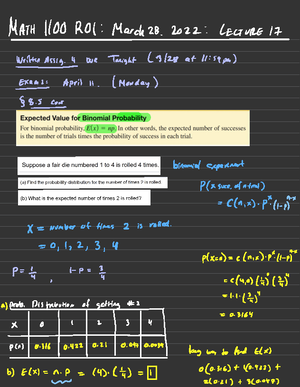 MATH 1100 R01: March 28, 2022: LECTURE 17
Written Assig. 4 Due Tonight (3/28 at 11:59pm)
Exam 3: April 11. (Monday)
§ 8.5 Cont
Expected Value for Binomial Probability
For binomial probability, E(x) = np. In other words, the expected number of successes
is the number of trials times the probability of success in each trial.
Suppose a fair die numbered 1 to 4 is rolled 4 times.
binomial experiment
(a) Find the probability distribution for the number of times 2 is rolled.
P(x suc. of n trial)
= C(n,x)·pˣ·(1-p)ⁿ⁻ˣ
(b) What is the expected number of times 2 is rolled?
X = number of times 2 is rolled.
= 0, 1, 2, 3, 4
P(x=0) = C(n,x)·pˣ(1-p)ⁿ⁻ˣ
P = 1/4 , 1-P = 3/4
= C(4,0)(1/4)⁰(3/4)⁴
= 1·1·(3/4)⁴
= 0.3164
a) Prob. Distribution of getting #2
X 0 1 2 3 4
P(x) 0.316 0.422 0.21 0.0039
long way to find E(x)
b) E(x) = n·p = (4)·(1/4) = 1